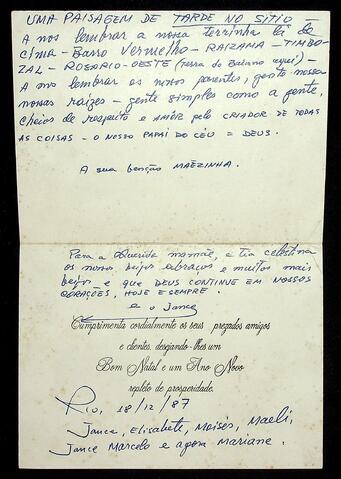 UMA PAISAGEM DE TARDE NO SITIO -
A nos lembrar a nossa terrinha lá de
cima - Barro Vermelho - RAIZAMA - TIMBO-
ZAL - ROSARIO - OESTE (terra do Baiano aqui) -
A nos lembrar os nossos parentes, gente nossa
nossas raizes - gente simples como a gente,
cheios de respeito e AMÔR pelo CRIADOR DE TODAS
AS COISAS - O NOSSO PAPAI DO CÉU = DEUS.
A sua benção MÃEZINHA.
Para a querida mamãe, e tia celestina
os nossos beijos abraços e muitos mais
beijos - e que DEUS CONTINUE EM NOSSOS
CORAÇÕES, HOJE E SEMPRE.
e o Jance
Cumprimenta cordialmente os seus prezados amigos
e clientes, desejando-lhes um
Bom Natal e um Ano Novo
repleto de prosperidade.
Rio, 18/12/87
Jance, Elisabete, Moisés, Maeli,
Jance Marcelo e agora Mariane.